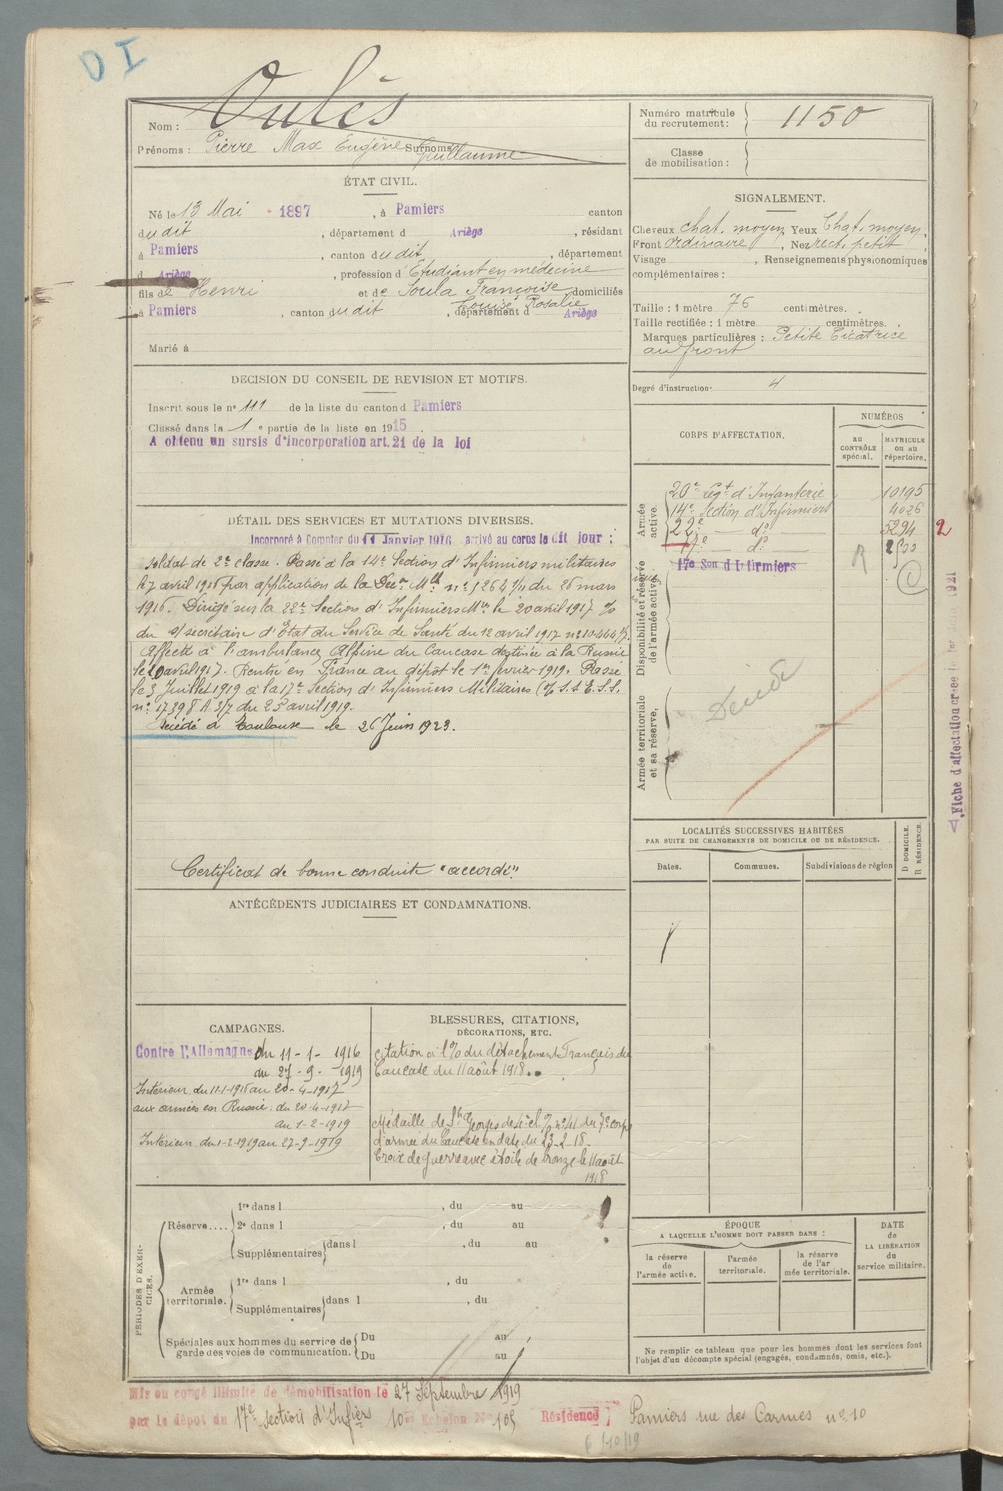 D I
Nom : Oulès
Prénoms : Pierre Max Eugène Surnoms Guillaume
Numéro matricule
du recrutement : 1150
Classe
de mobilisation :
ÉTAT CIVIL.
Né le 13 Mai 1897, à Pamiers canton
dudit, département d Ariège, résidant
à Pamiers, canton dudit, département
d Ariège, profession d'Etudiant en médecine
fils de Henri et de Soula Françoise domiciliés
Louise Rosalie
à Pamiers, canton dudit, département d Ariège
Marié à
SIGNALEMENT.
Cheveux chat. moyen Yeux Chat. moyen,
Front ordinaire, Nez rect. petit
Visage , Renseignements physionomiques
complémentaires :
Taille : 1 mètre 76 centimètres.
Taille rectifiée : 1 mètre centimètres.
Marques particulières : Petite Cicatrice
au front
Degré d'instruction : 4
DECISION DU CONSEIL DE REVISION ET MOTIFS.
Inscrit sous le n° 111 de la liste du canton d Pamiers
Classé dans la 1e partie de la liste en 1915.
A obtenu un sursis d'incorporation art. 21 de la loi
DÉTAIL DES SERVICES ET MUTATIONS DIVERSES.
Incorporé à Compter du 11 Janvier 1916 arrivé au corps le dit jour :
soldat de 2e classe. Passé à la 14e Section d'Infirmiers militaires
le 7 avril 1916 par application de la Don Mlle n° du 26 mars
1916. Dirigé sur la 22e Section d'Infirmiers Mres le 20 avril 1917
du s/secrétaire d'État du Service de Santé du 12 avril 1917
Affecté à l'ambulance Alpine du Caucase destinée à la Russie
le 20 avril 1917. Rentré en France au dépôt le 1er février 1919. Passé
le 3 Juillet 1919 à la 17e Section d'Infirmiers Militaires
n° 17398 A 3/7 du 23 avril 1919.
Décédé à Toulouse le 26 Juin 1923.
Certificat de bonne conduite "accordé".
CORPS D'AFFECTATION.
NUMÉROS
au
CONTRÔLE
spécial.
MATRICULE
ou au
répertoire.
Armée
active.
20e Régt d'Infanterie 10195
14e Section d'Infirmiers 4026
22e — do — 5294 2
17e — do —
Disponibilité et réserve
de l'armée active.
17e Son d'Infirmiers
R
Armée territoriale
et sa réserve.
Décédé
Fiche d'affectation créée le 1921
LOCALITÉS SUCCESSIVES HABITÉES
PAR SUITE DE CHANGEMENTS DE DOMICILE OU DE RÉSIDENCE.
Dates.
Communes.
Subdivisions de région
D DOMICILE.
R RÉSIDENCE.
ANTÉCÉDENTS JUDICIAIRES ET CONDAMNATIONS.
CAMPAGNES.
Contre l'Allemagne du 11-1-1916
au 27-9-1919
Intérieur du 11-1-1916 au 20-4-1917
aux armées en Russie : du 20-4-1917
au 1-2-1919
Intérieur du 1-2-1919 au 27-9-1919
BLESSURES, CITATIONS,
DÉCORATIONS, ETC.
citation à l'% du détachement Français du
Caucase du 11 août 1918.
Médaille de St Georges de 4e cl. du 7e corps
d'armée du Caucase en date du 23-2-18.
Croix de guerre avec étoile de bronze le 11 août
1918
PÉRIODES D'EXERCICES.
Réserve....
1re dans l , du au
2e dans l , du au
Supplémentaires dans l , du au
Armée
territoriale.
1re dans l , du
Supplémentaires dans l , du
Spéciales aux hommes du service de
garde des voies de communication.
Du au ,
Du au
ÉPOQUE
A LAQUELLE L'HOMME DOIT PASSER DANS :
la réserve
de
l'armée active.
l'armée
territoriale.
la réserve
de l'ar
mée territoriale.
DATE
de
LA LIBÉRATION
du
service militaire.
Ne remplir ce tableau que pour les hommes dont les services font
l'objet d'un décompte spécial (engagés, condamnés, omis, etc.).
Mis en congé illimité de démobilisation le 27 Septembre 1919
par le dépôt du 17e section d'Infier 10e Echelon No 105 Résidence Pamiers rue des Carmes n° 10
6/10/19